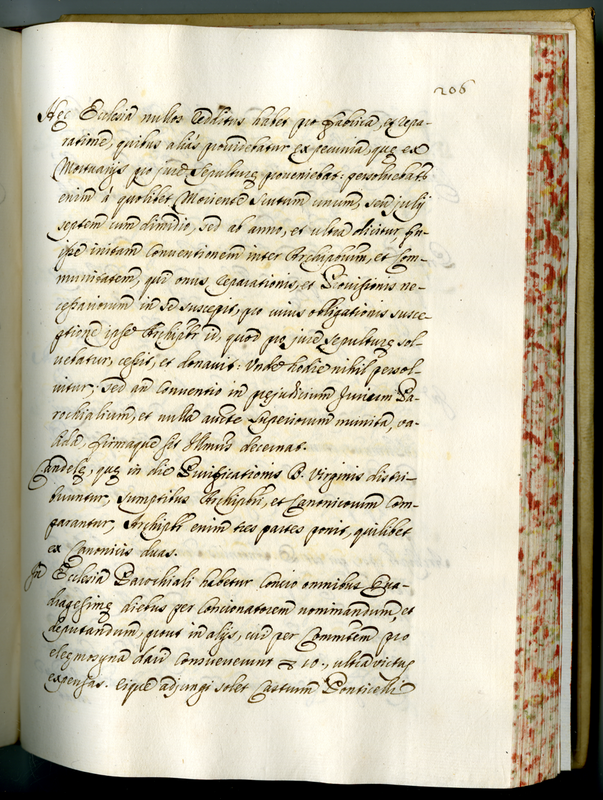 206
Hec Ecclesia nullos redditus habet pro fabrica, et repa-
ratione, quibus aliàs providebatur ex pecunia, que ex
Mortuarijs pro jure sepulture proveniebat: persolvebatr
enim à quolibet Moriente scutum unum, seu julij
septem cum dimidio, sed ab anno, et ultra dicitur fu-
isse initam Conventionem inter Archiprum, et Com-
munitatem, que onus reparationis, et Provisionis ne-
cessariorum in se suscepit, pro cuius obligationis susce-
ptione ipse Archipr id, quod pro jure sepulture sol-
vebatur, cessit, et donavit: Unde hodie nihil persol-
vitur; sed an Conventio in prejudicium Jurium Pa-
rochialium, et nulla aucte Superiorum munita, va-
lida, firmaque sit Illmus decernat.
Candele, que in die Purificationis B. Virginis distri-
buuntur, sumptibus Archipri, et Canonicorum Com-
parantur, Archipr enim tres partes ponit, quilibet
ex Canonicis duas.
In Ecclesia Parochiali habetur Concio omnibus Qua-
dragesime diebus per Concionatorem nominandum, et
deputandum, prout in alijs, cui per Commtem pro
elemosyna dari Consueverunt 10., ultra victus
expensas. eique adjungi solet Castrum Ponticelli